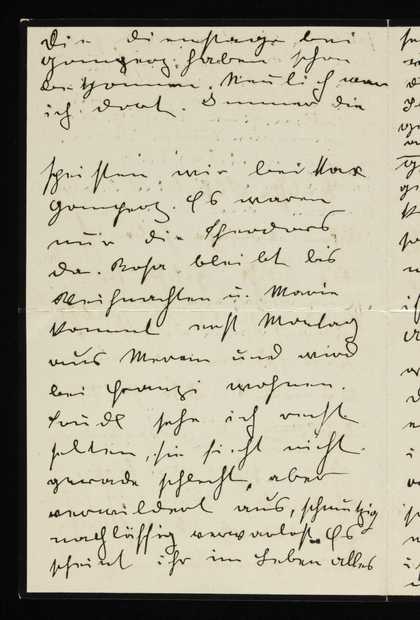 Die Dienstage bei
Gomperz haben schon
begonnen. Neulich war
ich dort. Immer die

speisten wir bei Max
Gomperz. Es waren
nur die Theodors
da. Rosa bleibt bis
Weihnachten u. Marie
kommt erst Montag
aus Meran und wird
bei Franzi wohnen.
sehe ich recht
selten, sie sieht nicht
gerade schlecht, aber
verwildert aus, schmutzig
nachlässig verwarlost. Es
scheint ihr im Leben alles